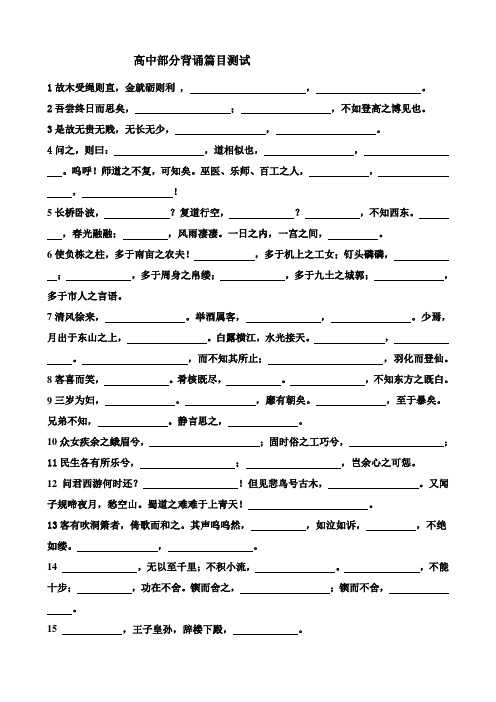 高中部分背诵篇目测试
1故木受绳则直，金就砺则利 ，________，________。
2吾尝终日而思矣，________；________，不如登高之博见也。
3是故无贵无贱，无长无少，________，________。
4问之，则曰：________，道相似也，________，________
__。呜呼！师道之不复，可知矣。巫医、乐师、百工之人，________，________
____，________！
5长桥卧波，________？复道行空，________？________，不知西东。____
__，春光融融；________，风雨凄凄。一日之内，一宫之间，________。
6使负栋之柱，多于南亩之农夫！________，多于机上之工女；钉头磷磷，________
__；________，多于周身之帛缕；________，多于九土之城郭；________，
多于市人之言语。
7清风徐来，________。举酒属客，________，________。少焉，
月出于东山之上，________。白露横江，水光接天。________，________
____。________，而不知其所止；________，羽化而登仙。
8客喜而笑，________。肴核既尽，________。________，不知东方之既白。
9三岁为妇，________。________，靡有朝矣。________，至于暴矣。
兄弟不知，________。静言思之，________。
10众女疾余之蛾眉兮，________；固时俗之工巧兮，________；
11民生各有所乐兮，________；________，岂余心之可惩。
12 问君西游何时还？________！但见悲鸟号古木，________。又闻
子规啼夜月，愁空山。蜀道之难难于上青天！________。
13客有吹洞箫者，倚歌而和之。其声呜呜然，________，如泣如诉，________，不绝
如缕。________，________。
14 ________，无以至千里；不积小流，________。________，不能
十步；________，功在不舍。锲而舍之，________；锲而不舍，________
____。
15 ________，王子皇孙，辞楼下殿，________。